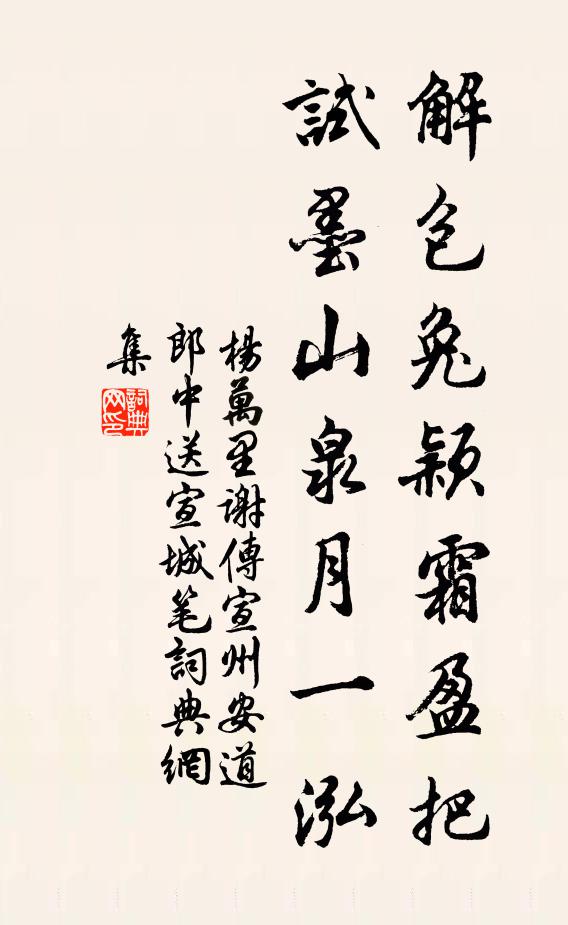 解包兔颖霜盈把
試墨山泉月一泓
楊萬里謝傅宣州安道
郎中送宣城笔詞典網
集
詞典網印